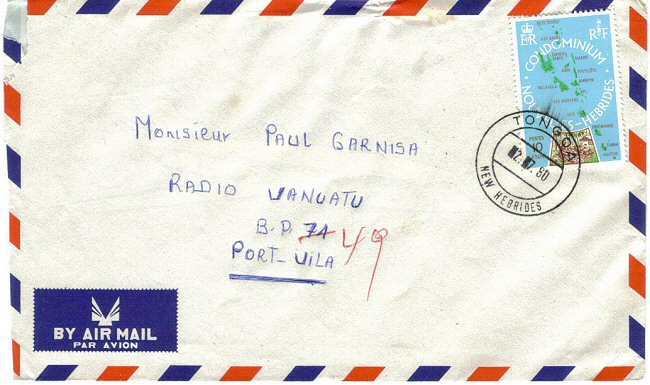 E R
R F
CONDOMINIUM
HEBRIDES
POSTES 10
TONGOA
80
NEW HEBRIDES
Monsieur PAUL GARNISA
RADIO VANUATU
B.P. 74 49
PORT-VILA
BY AIR MAIL
PAR AVION